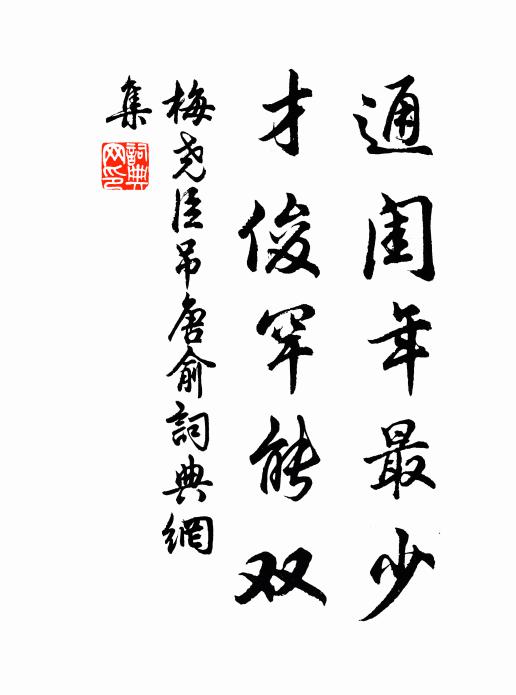 通闺年最少
才俊罕能双
梅尧臣吊唐俞詞典網
集
詞典
网印